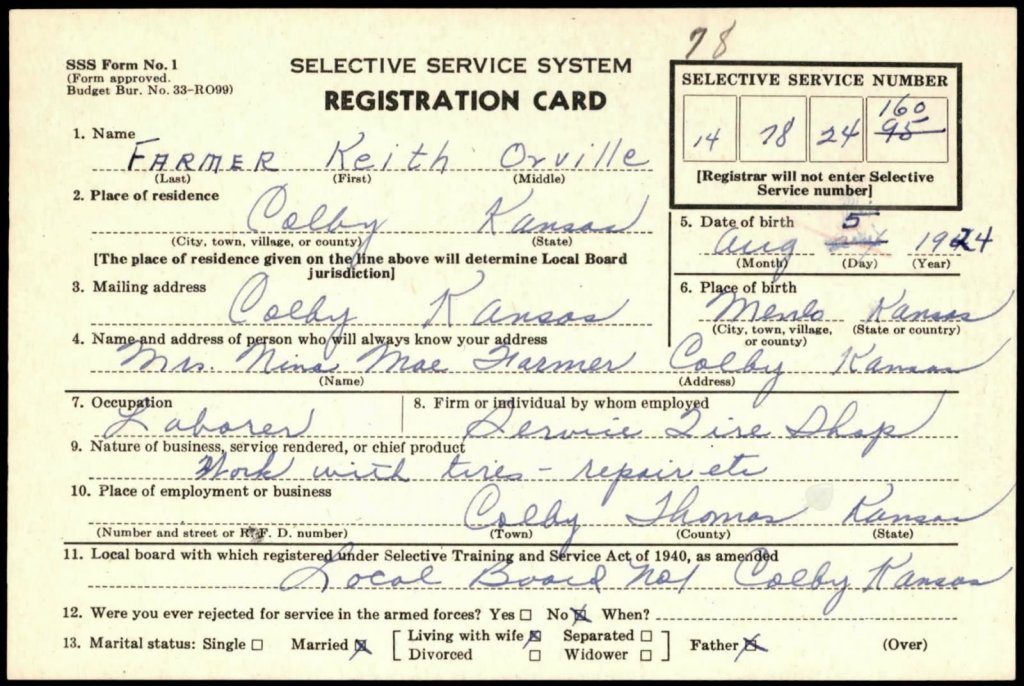 78
SSS Form No. 1
(Form approved.
Budget Bur. No. 33-RO99)
SELECTIVE SERVICE SYSTEM
REGISTRATION CARD
SELECTIVE SERVICE NUMBER
14 78 24 95 160
[Registrar will not enter Selective
Service number]
1. Name
FARMER Keith Orville
(Last) (First) (Middle)
2. Place of residence
Colby Kansas
(City, town, village, or county) (State)
[The place of residence given on the line above will determine Local Board
jurisdiction]
3. Mailing address
Colby Kansas
4. Name and address of person who will always know your address
Mrs. Nina Mae Farmer Colby Kansas
(Name) (Address)
5. Date of birth
Aug 5 1924
(Month) (Day) (Year)
6. Place of birth
Menlo Kansas
(City, town, village, (State or country)
or county)
7. Occupation
Laborer
8. Firm or individual by whom employed
Service Tire Shop
9. Nature of business, service rendered, or chief product
Work with tires - repair etc
10. Place of employment or business
Colby Thomas Kansas
(Number and street or R. F. D. number) (Town) (County) (State)
11. Local board with which registered under Selective Training and Service Act of 1940, as amended
Local Board No 1 Colby Kansas
12. Were you ever rejected for service in the armed forces? Yes ☐ No ☒ When?
13. Marital status: Single ☐ Married ☒ [Living with wife ☒ Separated ☐ Father ☒ (Over)
Divorced ☐ Widower ☐]